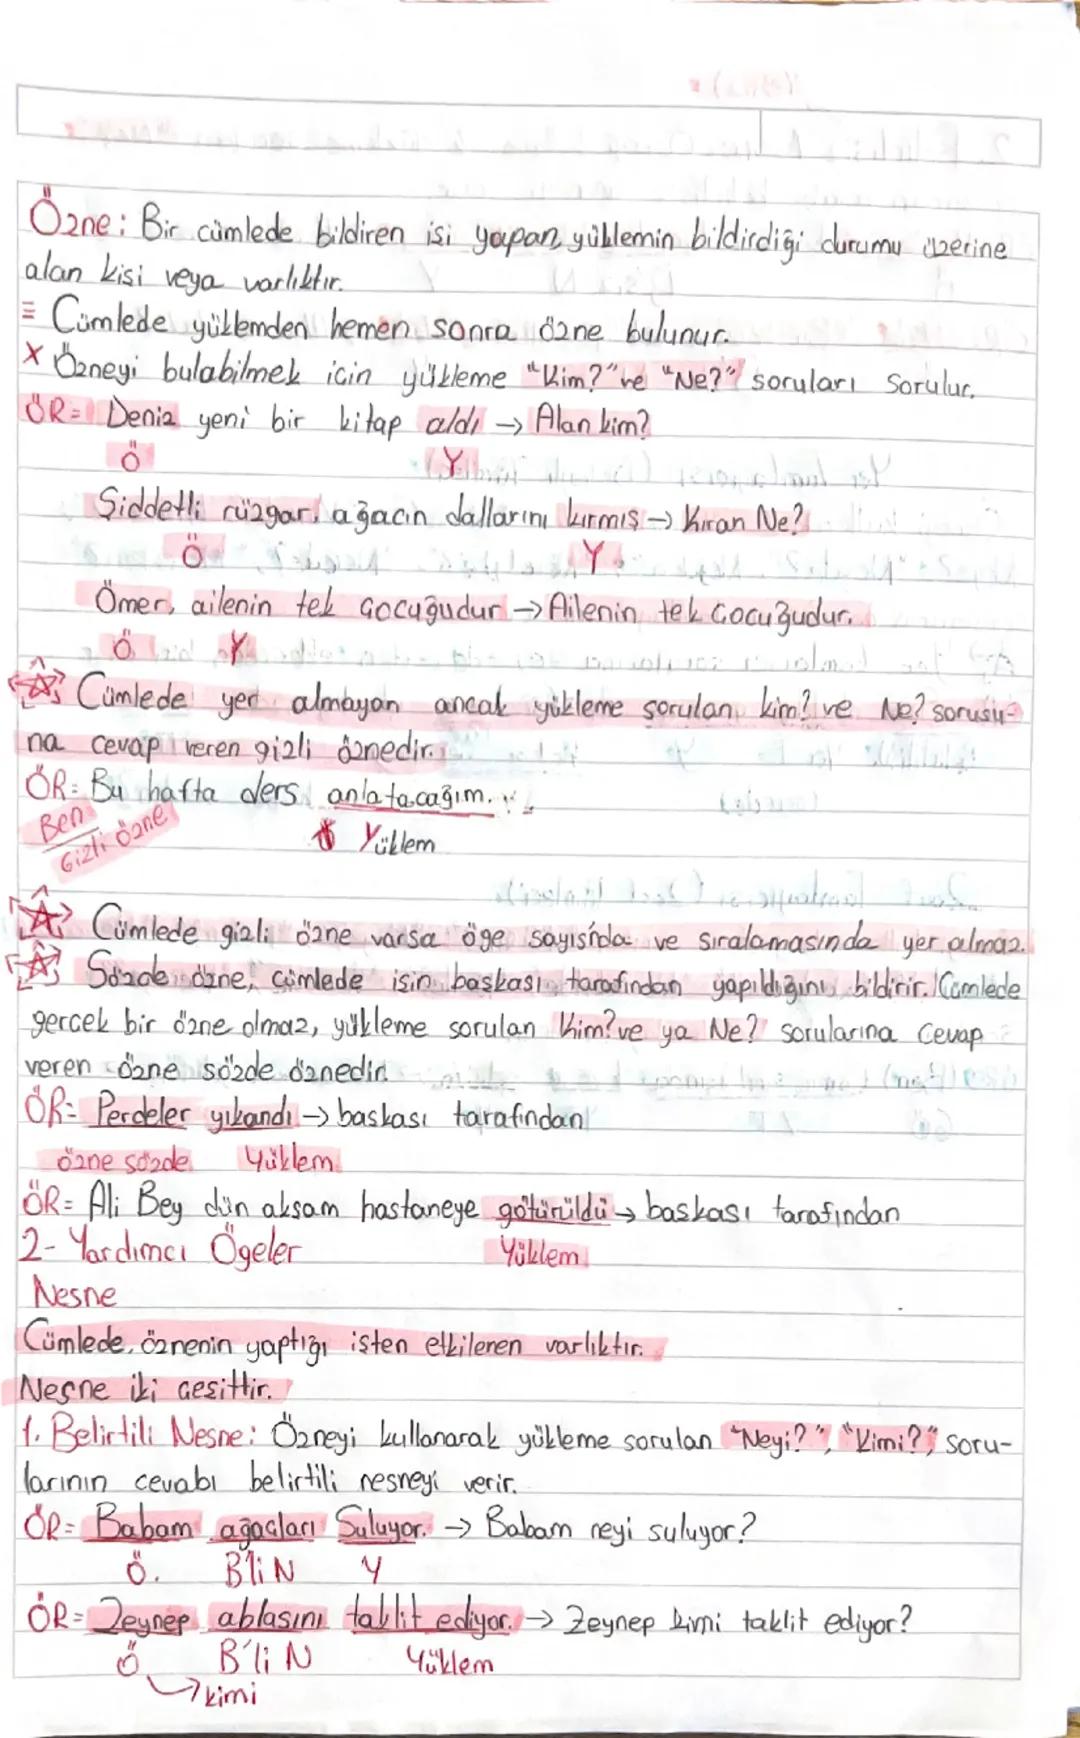 Özne: Bir cümlede bildiren işi yapan, yüklemin bildirdiği durumu üzerine
alan kişi veya varlıktır.
= Cümlede yüklemden hemen sonra özne bulunur.
x Özneyi bulabilmek icin yükleme "Kim?" ve "Ne?" soruları sorulur.
ÖR= Deniz yeni bir kitap aldı → Alan kim?
Ö Y
Şiddetli rüzgar, ağacın dallarını kırmış → Kıran Ne?
Ö Y
Ömer, ailenin tek çocuğudur → Ailenin tek çocuğudur.
Ö Y
Cümlede yer almayan ancak yükleme sorulan kim? ve Ne? sorusu-
na cevap veren gizli öznedir.
ÖR= Bu hafta ders anlatacağım.
Ben
Gizli özne
Yüklem
Cümlede gizli özne varsa öge sayısında ve sıralamasında yer almaz.
Sözde özne, cümlede işin başkası tarafından yapıldığını bildirir. Cümlede
gerçek bir özne olmaz, yükleme sorulan Kim? ve ya Ne? sorularına cevap
veren özne sözde öznedir.
ÖR= Perdeler yıkandı → başkası tarafından
özne sözde Yüklem
ÖR= Ali Bey dün akşam hastaneye götürüldü → başkası tarafından
Yüklem
2- Yardımcı Ögeler
Nesne
Cümlede, öznenin yaptığı işten etkilenen varlıktır.
Nesne iki çeşittir.
1. Belirtili Nesne: Özneyi kullanarak yükleme sorulan "Neyi?", "Kimi?", soru-
larının cevabı belirtili nesneyi verir.
ÖR= Babam ağaçları Suluyor. → Babam neyi suluyor?
Ö. B'li N Y
ÖR= Zeynep ablasını taklit ediyor. → Zeynep kimi taklit ediyor?
Ö B'li N Yüklem
→ kimi